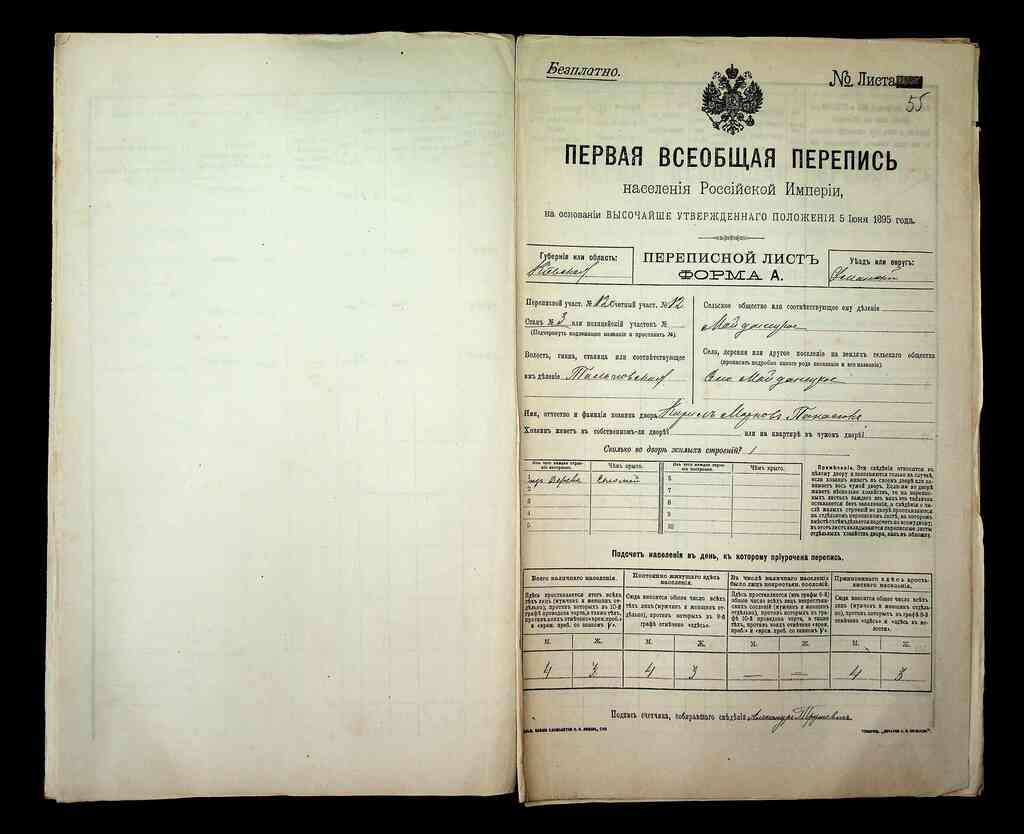 Безплатно.
№ Листа
55
ПЕРВАЯ ВСЕОБЩАЯ ПЕРЕПИСЬ
населенія Россійской Имперіи,
на основаніи ВЫСОЧАЙШЕ УТВЕРЖДЕННАГО ПОЛОЖЕНІЯ 5 Іюня 1895 года.
Губернія или область:
Кіевская
ПЕРЕПИСНОЙ ЛИСТЪ
ФОРМА А.
Уѣздъ или округъ:
Уманскій
Переписной участ. № 12 Счетный участ. № 12
Станъ № 3 или полицейскій участокъ №
(Подчеркнуть надлежащее названіе и проставить №).
Волость, гмина, станица или соотвѣтствующее
имъ дѣленіе Тальновская
Сельское общество или соотвѣтствующее ему дѣленіе
Майданецкое
Село, деревня или другое поселеніе на земляхъ сельскаго общества
(прописать подробно какого рода поселеніе и его названіе).
Село Майданецкое
Имя, отчество и фамилія хозяина двора Кирилъ Марковъ
Хозяинъ живетъ въ собственномъ-ли дворѣ? или на квартирѣ въ чужомъ дворѣ?
Сколько во дворѣ жилыхъ строеній? 1
Изъ чего каждое строеніе построено.
Чѣмъ крыто.
Изъ чего каждое строеніе построено.
Чѣмъ крыто.
1 изъ дерева соломой 6
2 7
3 8
4 9
5. 10
Примѣчаніе. Эти свѣдѣнія относятся къ
цѣлому двору и заполняются только въ случаѣ,
если хозяинъ живетъ въ своемъ дворѣ или занимаетъ весь чужой дворъ. Если-же во дворѣ
живетъ нѣсколько хозяйствъ, то на переписныхъ листахъ каждаго изъ нихъ эта табличка
оставляется безъ заполненія, а свѣдѣнія о числѣ жилыхъ строеній во дворѣ проставляются
на отдѣльномъ переписномъ листѣ, на которомъ
вмѣстѣ съ тѣмъ дѣлается подсчетъ по всему двору;
въ этотъ листъ вкладываются переписные листы
отдѣльныхъ хозяйствъ двора, какъ въ обложку.
Подсчетъ населенія въ день, къ которому пріурочена перепись.
Всего наличнаго населенія.
Постоянно живущаго здѣсь населенія.
Въ числѣ наличнаго населенія было лицъ некрестьян. сословій.
Приписаннаго здѣсь крестьянскаго населенія.
Здѣсь проставляется итогъ всѣхъ
тѣхъ лицъ (мужчинъ и женщинъ отдѣльно), противъ которыхъ въ 10-й
графѣ проведена черта, а также тѣхъ,
противъ коихъ отмѣчено «врем. преб.»
и «врем. преб. со знакомъ V».
Сюда вносится общее число всѣхъ
тѣхъ лицъ (мужчинъ и женщинъ отдѣльно), противъ которыхъ въ 9-й
графѣ отмѣчено «здѣсь».
Здѣсь проставляется (изъ графы 6-й)
общее число всѣхъ лицъ некрестьянскихъ сословій (мужчинъ и женщинъ
отдѣльно), противъ которыхъ въ графѣ 10-й проведена черта, а также
тѣхъ, противъ коихъ отмѣчено «врем.
преб.» и «врем. преб. со знакомъ V».
Сюда вносится общее число всѣхъ
лицъ (мужчинъ и женщинъ отдѣльно), противъ которыхъ въ графѣ 8-й
отмѣчено «здѣсь» и «здѣсь въ волости».
М. Ж. М. Ж. М. Ж. М. Ж.
4 3 4 3 — — 4 3
Подпись счетчика, собиравшаго свѣдѣнія Александръ